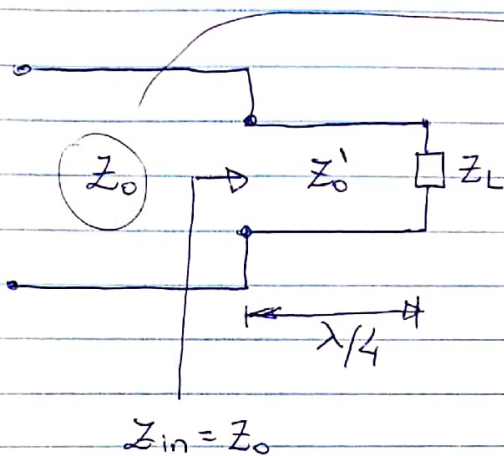 Z₀
Z₀'
Z_L
λ/4
Z_in = Z₀